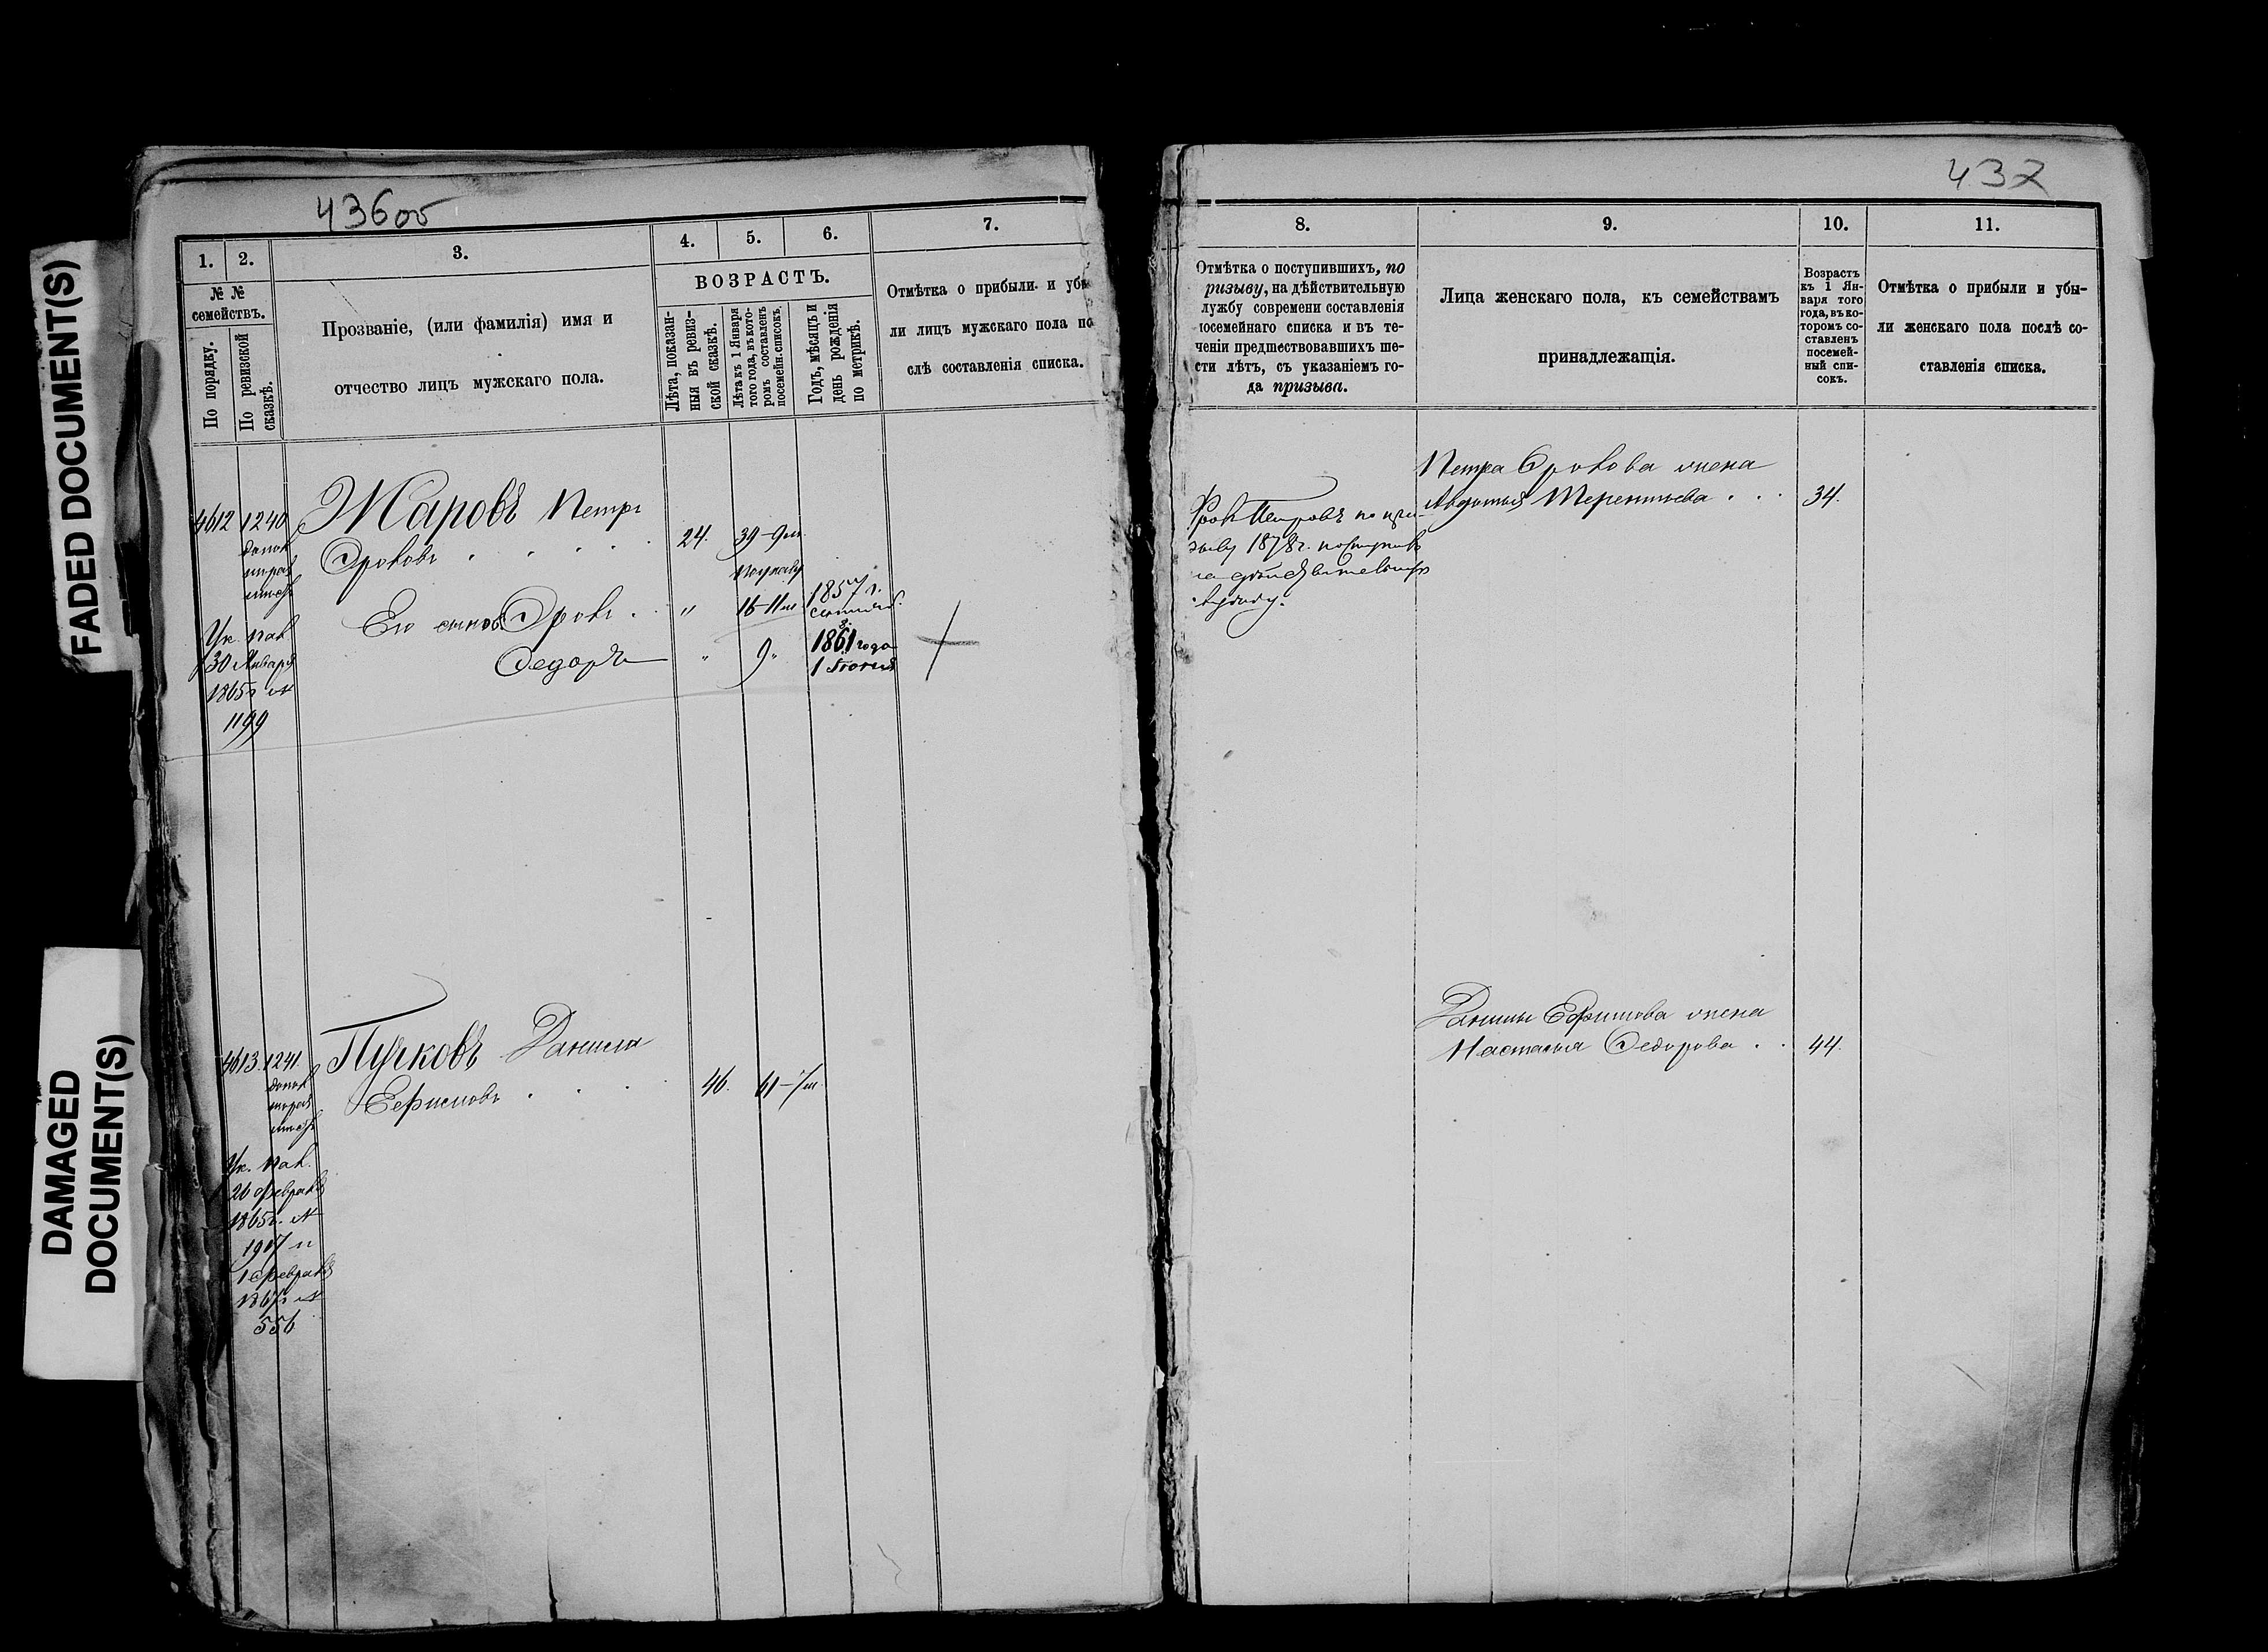 FADED DOCUMENT(S)
DAMAGED
DOCUMENT(S)
436об
1.
2.
3.
4.
5.
6.
7.
№ №
семействъ.
По порядку.
По ревизской
сказкѣ.
Прозваніе, (или фамилія) имя и
отчество лицъ мужскаго пола.
ВОЗРАСТЪ.
Лѣта, показан-
ныя въ ревиз-
ской сказкѣ.
Лѣта къ 1 Января
того года, въ кото-
ромъ составленъ
посемейн. списокъ.
Годъ, мѣсяцъ и
день рожденія
по метрикѣ.
Отмѣтка о прибыли и убы
ли лицъ мужскаго пола по
слѣ составленія списка.
4612
1240
Жаровъ Петръ
Фроловъ
24.
39-9м.
Его сынов Фролъ
"
16-11м.
1857 г.
Федоръ
"
9"
1861 года
1 Іюня
Ук. пал.
30 Января
1865г №
1199
4613.
1241.
Пучковъ Данила
Ефимовъ
46.
61-7м.
Ук. пал.
26 февраля
1865г. №
1907 и
1 февраля
1867г №
556
437
8.
9.
10.
11.
Отмѣтка о поступившихъ, по
ризыву, на дѣйствительную
лужбу современи составленія
осемейнаго списка и въ те-
ченіи предшествовавшихъ ше-
сти лѣтъ, съ указаніемъ го-
да призыва.
Лица женскаго пола, къ семействамъ
принадлежащія.
Возрастъ
къ 1 Ян-
варя того
года, въ ко-
торомъ со-
ставленъ
посемей-
ный спи-
сокъ.
Отмѣтка о прибыли и убы-
ли женскаго пола послѣ со-
ставленія списка.
Фролъ Петровъ по при-
зыву 1878г. поступилъ
на дѣйствительную
службу.
Петра Фролова жена
Авдотья Терентьева
34.
Данилы Ефимова жена
Настасья Федорова
44.